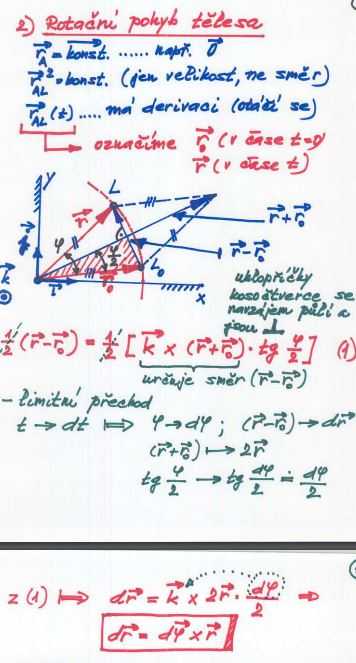 2) Rotační pohyb tělesa
r⃗_A = k⃗o⃗n⃗s⃗t⃗. ...... např. 0⃗
r⃗_AL² = konst. (jen velikost, ne směr)
r⃗_AL (t) ..... má derivaci (otáčí se)
označíme r⃗₀ (v čase t=0)
r⃗ (v čase t)
y
L
r⃗
r⃗+r⃗₀
j⃗
φ
φ/2
r⃗-r⃗₀
L₀
k⃗
i⃗
r⃗₀
x
uhlopříčky
kosočtverce se
navzájem půlí a
jsou ⊥
1/2 (r⃗-r⃗₀) = 1/2 [k⃗ x (r⃗+r⃗₀) · tg φ/2] (1)
určuje směr (r⃗-r⃗₀)
- limitní přechod
t → dt ⟾ φ → dφ ; (r⃗-r⃗₀) → dr⃗
(r⃗+r⃗₀) ↦ 2r⃗
tg φ/2 → tg dφ/2 ≐ dφ/2
z (1) ⟾ dr⃗ = k⃗ x 2r⃗ · dφ/2 ⇒
dr⃗ = dφ⃗ x r⃗